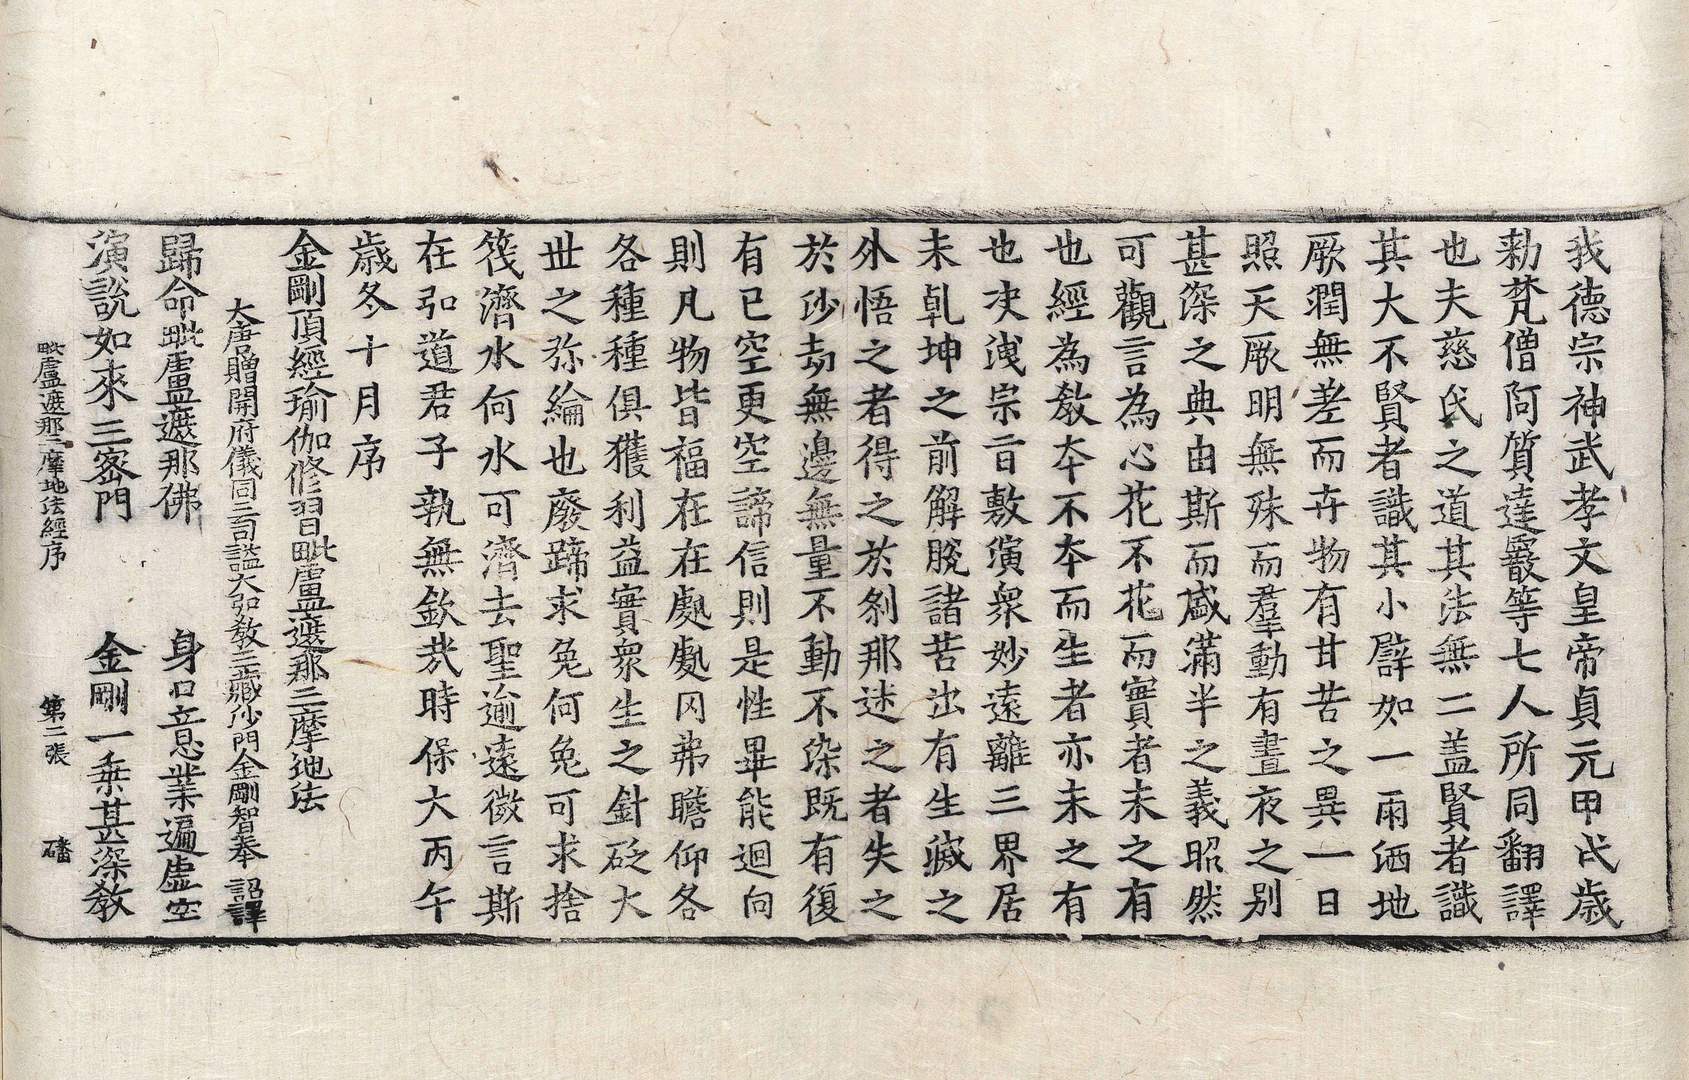 我德宗神武孝文皇帝貞元甲戌歲
勑梵僧阿質達霰等七人所同翻譯
也夫慈氏之道其法無二盖賢者識
其大不賢者識其小譬如一雨洒地
厥潤無差而卉物有甘苦之異一日
照天厥明無殊而羣動有晝夜之别
甚深之典由斯而咸滿半之義昭然
可觀言為心花不花而實者未之有
也經為教夲不夲而生者亦未之有
也决洩宗旨敷演衆妙遠離三界居
未乹坤之前解脫諸苦出有生滅之
外悟之者得之於刹那迷之者失之
於沙劫無邊無量不動不染旣有復
有已空更空諦信則是性畢能迴向
則凡物皆福在在處處冈弗瞻仰各
各種種俱獲利益實衆生之針砭大
丗之弥綸也廢蹄求兔何兔可求捨
筏濟水何水可濟去聖逾遠微言斯
在弘道君子孰無欽㢤時保大丙午
歲冬十月序
金剛頂經瑜伽修習毗盧遮那三摩地法
大唐贈開府儀同三司謚大弘教三藏沙門金剛智奉 詔譯
歸命毗盧遮那佛 身口意業遍虛空
演說如來三密門 金剛一乗甚深教
毗盧遮那三摩地法經序 第二張 磻